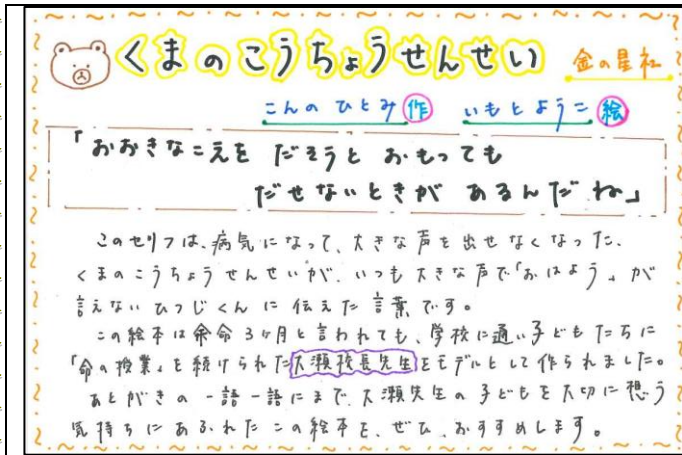 くまのこうちょうせんせい 金の星社
こんのひとみ 作 いもとようこ 絵
「おおきなこえを だそうと おもっても
だせないときが あるんだ ね」
このセリフは、病気になって、大きな声を出せなくなった、
くまのこうちょうせんせいが、いつも大きな声で「おはよう」が
言えないひつじくんに伝えた言葉です。
この絵本は余命3ヶ月と言われても、学校に通い子どもたちに
「命の授業」を続けられた大瀬校長先生をモデルとして作られました。
あとがきの一語一語にまで、大瀬先生の子どもを大切に想う
気持ちにあふれたこの絵本を、ぜひ、おすすめします。